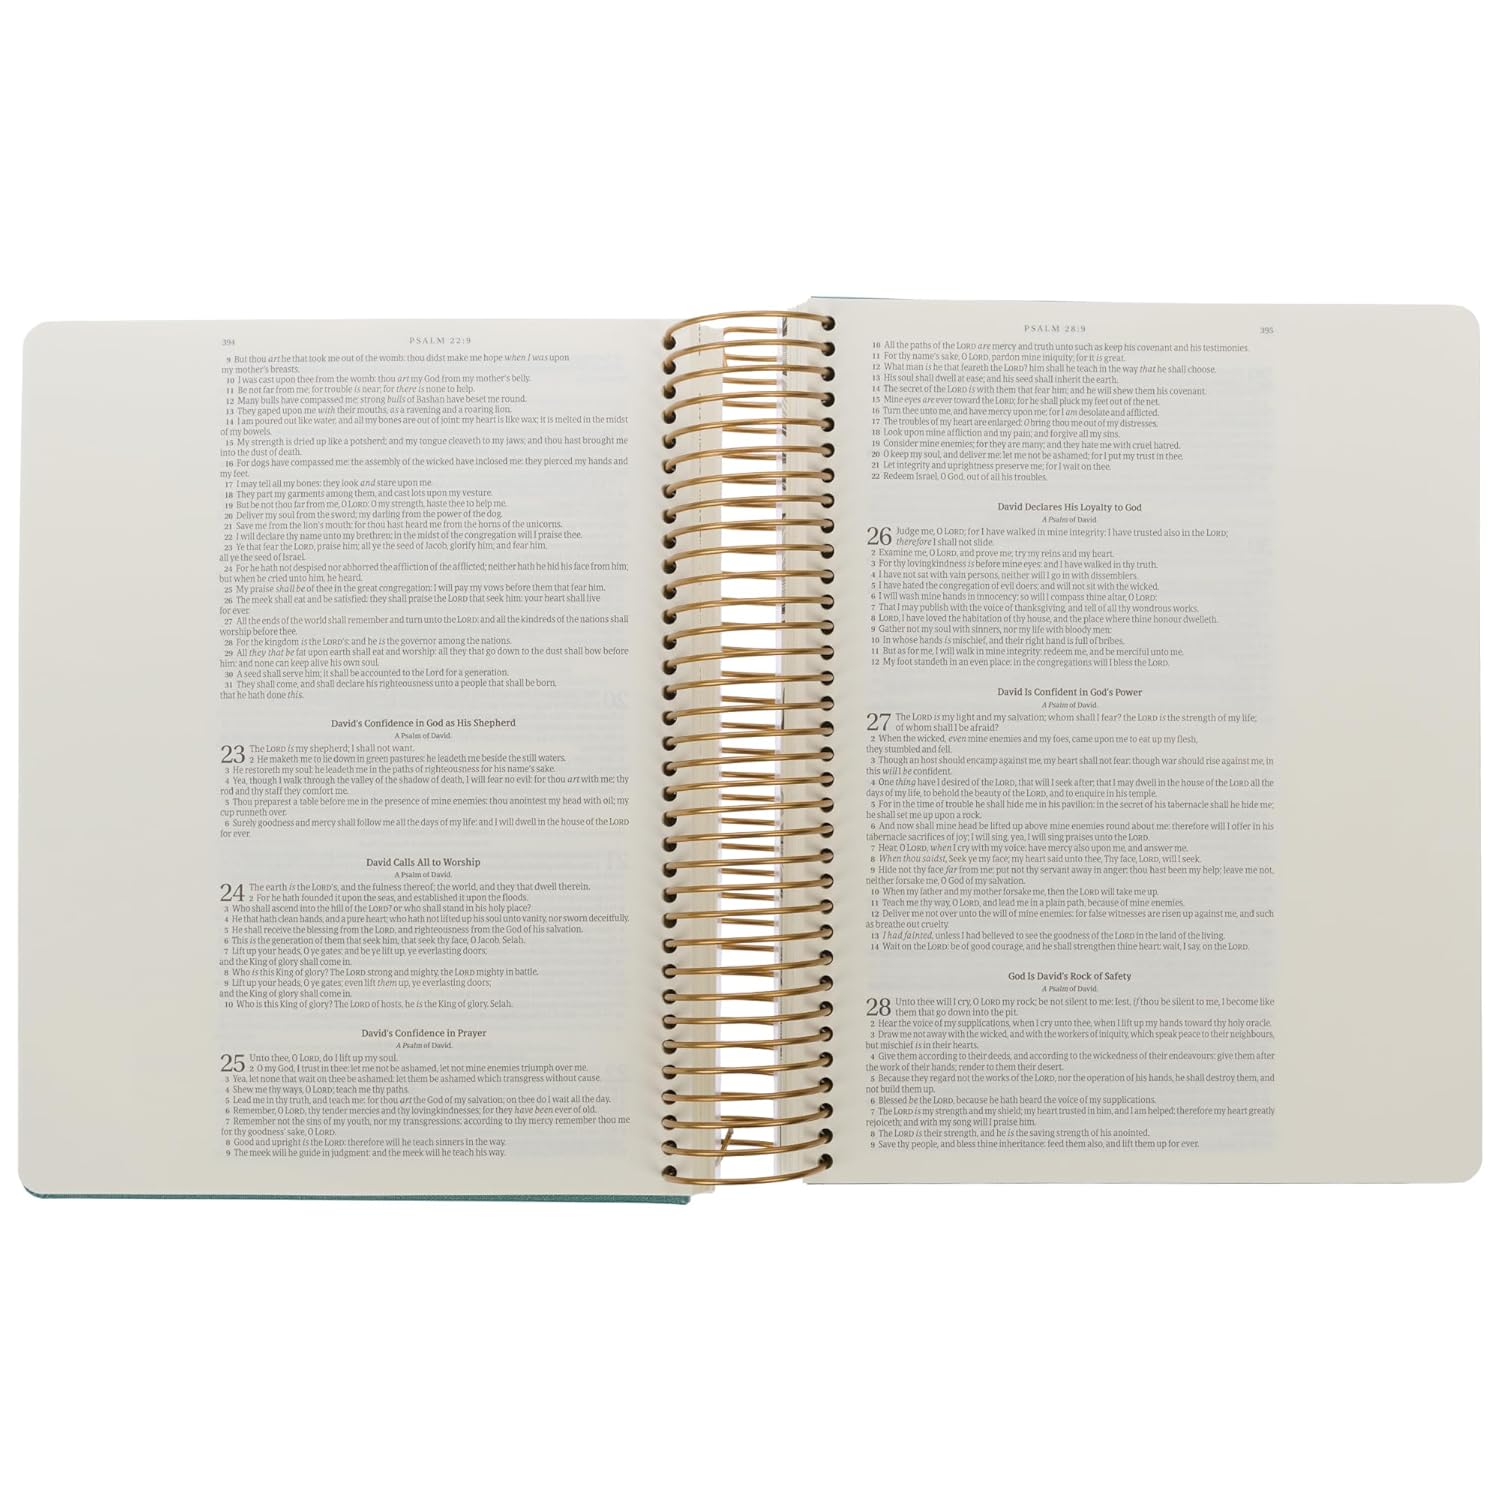 394
PSALM 22:9
9 But thou art he that took me out of the womb: thou didst make me hope when I was upon
my mother's breasts.
10 I was cast upon thee from the womb: thou art my God from my mother's belly.
11 Be not far from me; for trouble is near; for there is none to help.
12 Many bulls have compassed me; strong bulls of Bashan have beset me round.
13 They gaped upon me with their mouths, as a ravening and a roaring lion.
14 I am poured out like water, and all my bones are out of joint: my heart is like wax; it is melted in the midst
of my bowels.
15 My strength is dried up like a potsherd; and my tongue cleaveth to my jaws; and thou hast brought me
into the dust of death.
16 For dogs have compassed me: the assembly of the wicked have inclosed me: they pierced my hands and
my feet.
17 I may tell all my bones: they look and stare upon me.
18 They part my garments among them, and cast lots upon my vesture.
19 But be not thou far from me, O LORD: O my strength, haste thee to help me.
20 Deliver my soul from the sword; my darling from the power of the dog.
21 Save me from the lion's mouth: for thou hast heard me from the horns of the unicorns.
22 I will declare thy name unto my brethren: in the midst of the congregation will I praise thee.
23 Ye that fear the LORD, praise him; all ye the seed of Jacob, glorify him; and fear him,
all ye the seed of Israel.
24 For he hath not despised nor abhorred the affliction of the afflicted; neither hath he hid his face from him;
but when he cried unto him, he heard.
25 My praise shall be of thee in the great congregation: I will pay my vows before them that fear him.
26 The meek shall eat and be satisfied: they shall praise the LORD that seek him: your heart shall live
for ever.
27 All the ends of the world shall remember and turn unto the LORD: and all the kindreds of the nations shall
worship before thee.
28 For the kingdom is the LORD's: and he is the governor among the nations.
29 All they that be fat upon earth shall eat and worship: all they that go down to the dust shall bow before
him: and none can keep alive his own soul.
30 A seed shall serve him; it shall be accounted to the Lord for a generation.
31 They shall come, and shall declare his righteousness unto a people that shall be born,
that he hath done this.
David's Confidence in God as His Shepherd
A Psalm of David.
23 The LORD is my shepherd; I shall not want.
2 He maketh me to lie down in green pastures: he leadeth me beside the still waters.
3 He restoreth my soul: he leadeth me in the paths of righteousness for his name's sake.
4 Yea, though I walk through the valley of the shadow of death, I will fear no evil: for thou art with me; thy
rod and thy staff they comfort me.
5 Thou preparest a table before me in the presence of mine enemies: thou anointest my head with oil; my
cup runneth over.
6 Surely goodness and mercy shall follow me all the days of my life: and I will dwell in the house of the LORD
for ever.
David Calls All to Worship
A Psalm of David.
24 The earth is the LORD's, and the fulness thereof; the world, and they that dwell therein.
2 For he hath founded it upon the seas, and established it upon the floods.
3 Who shall ascend into the hill of the LORD? or who shall stand in his holy place?
4 He that hath clean hands, and a pure heart; who hath not lifted up his soul unto vanity, nor sworn deceitfully.
5 He shall receive the blessing from the LORD, and righteousness from the God of his salvation.
6 This is the generation of them that seek him, that seek thy face, O Jacob. Selah.
7 Lift up your heads, O ye gates; and be ye lift up, ye everlasting doors;
and the King of glory shall come in.
8 Who is this King of glory? The LORD strong and mighty, the LORD mighty in battle.
9 Lift up your heads, O ye gates; even lift them up, ye everlasting doors;
and the King of glory shall come in.
10 Who is this King of glory? The LORD of hosts, he is the King of glory. Selah.
David's Confidence in Prayer
A Psalm of David.
25 Unto thee, O LORD, do I lift up my soul.
2 O my God, I trust in thee: let me not be ashamed, let not mine enemies triumph over me.
3 Yea, let none that wait on thee be ashamed: let them be ashamed which transgress without cause.
4 Shew me thy ways, O LORD; teach me thy paths.
5 Lead me in thy truth, and teach me: for thou art the God of my salvation; on thee do I wait all the day.
6 Remember, O LORD, thy tender mercies and thy lovingkindnesses; for they have been ever of old.
7 Remember not the sins of my youth, nor my transgressions: according to thy mercy remember thou me
for thy goodness' sake, O LORD.
8 Good and upright is the LORD: therefore will he teach sinners in the way.
9 The meek will he guide in judgment: and the meek will he teach his way.
PSALM 28:9
395
10 All the paths of the LORD are mercy and truth unto such as keep his covenant and his testimonies.
11 For thy name's sake, O LORD, pardon mine iniquity; for it is great.
12 What man is he that feareth the LORD? him shall he teach in the way that he shall choose.
13 His soul shall dwell at ease; and his seed shall inherit the earth.
14 The secret of the LORD is with them that fear him; and he will shew them his covenant.
15 Mine eyes are ever toward the LORD; for he shall pluck my feet out of the net.
16 Turn thee unto me, and have mercy upon me; for I am desolate and afflicted.
17 The troubles of my heart are enlarged: O bring thou me out of my distresses.
18 Look upon mine affliction and my pain; and forgive all my sins.
19 Consider mine enemies; for they are many; and they hate me with cruel hatred.
20 O keep my soul, and deliver me: let me not be ashamed; for I put my trust in thee.
21 Let integrity and uprightness preserve me; for I wait on thee.
22 Redeem Israel, O God, out of all his troubles.
David Declares His Loyalty to God
A Psalm of David.
26 Judge me, O LORD; for I have walked in mine integrity: I have trusted also in the LORD;
therefore I shall not slide.
2 Examine me, O LORD, and prove me; try my reins and my heart.
3 For thy lovingkindness is before mine eyes: and I have walked in thy truth.
4 I have not sat with vain persons, neither will I go in with dissemblers.
5 I have hated the congregation of evil doers; and will not sit with the wicked.
6 I will wash mine hands in innocency: so will I compass thine altar, O LORD:
7 That I may publish with the voice of thanksgiving, and tell of all thy wondrous works.
8 LORD, I have loved the habitation of thy house, and the place where thine honour dwelleth.
9 Gather not my soul with sinners, nor my life with bloody men:
10 In whose hands is mischief, and their right hand is full of bribes.
11 But as for me, I will walk in mine integrity: redeem me, and be merciful unto me.
12 My foot standeth in an even place: in the congregations will I bless the LORD.
David Is Confident in God's Power
A Psalm of David.
27 The LORD is my light and my salvation; whom shall I fear? the LORD is the strength of my life;
of whom shall I be afraid?
2 When the wicked, even mine enemies and my foes, came upon me to eat up my flesh,
they stumbled and fell.
3 Though an host should encamp against me, my heart shall not fear: though war should rise against me, in
this will I be confident.
4 One thing have I desired of the LORD, that will I seek after; that I may dwell in the house of the LORD all the
days of my life, to behold the beauty of the LORD, and to enquire in his temple.
5 For in the time of trouble he shall hide me in his pavilion: in the secret of his tabernacle shall he hide me;
he shall set me up upon a rock.
6 And now shall mine head be lifted up above mine enemies round about me: therefore will I offer in his
tabernacle sacrifices of joy; I will sing, yea, I will sing praises unto the LORD.
7 Hear, O LORD, when I cry with my voice: have mercy also upon me, and answer me.
8 When thou saidst, Seek ye my face; my heart said unto thee, Thy face, LORD, will I seek.
9 Hide not thy face far from me; put not thy servant away in anger: thou hast been my help; leave me not,
neither forsake me, O God of my salvation.
10 When my father and my mother forsake me, then the LORD will take me up.
11 Teach me thy way, O LORD, and lead me in a plain path, because of mine enemies.
12 Deliver me not over unto the will of mine enemies: for false witnesses are risen up against me, and such
as breathe out cruelty.
13 I had fainted, unless I had believed to see the goodness of the LORD in the land of the living.
14 Wait on the LORD: be of good courage, and he shall strengthen thine heart: wait, I say, on the LORD.
God Is David's Rock of Safety
A Psalm of David.
28 Unto thee will I cry, O LORD my rock; be not silent to me: lest, if thou be silent to me, I become like
them that go down into the pit.
2 Hear the voice of my supplications, when I cry unto thee, when I lift up my hands toward thy holy oracle.
3 Draw me not away with the wicked, and with the workers of iniquity, which speak peace to their neighbours,
but mischief is in their hearts.
4 Give them according to their deeds, and according to the wickedness of their endeavours: give them after
the work of their hands; render to them their desert.
5 Because they regard not the works of the LORD, nor the operation of his hands, he shall destroy them, and
not build them up.
6 Blessed be the LORD, because he hath heard the voice of my supplications.
7 The LORD is my strength and my shield; my heart trusted in him, and I am helped: therefore my heart greatly
rejoiceth; and with my song will I praise him.
8 The LORD is their strength, and he is the saving strength of his anointed.
9 Save thy people, and bless thine inheritance: feed them also, and lift them up for ever.